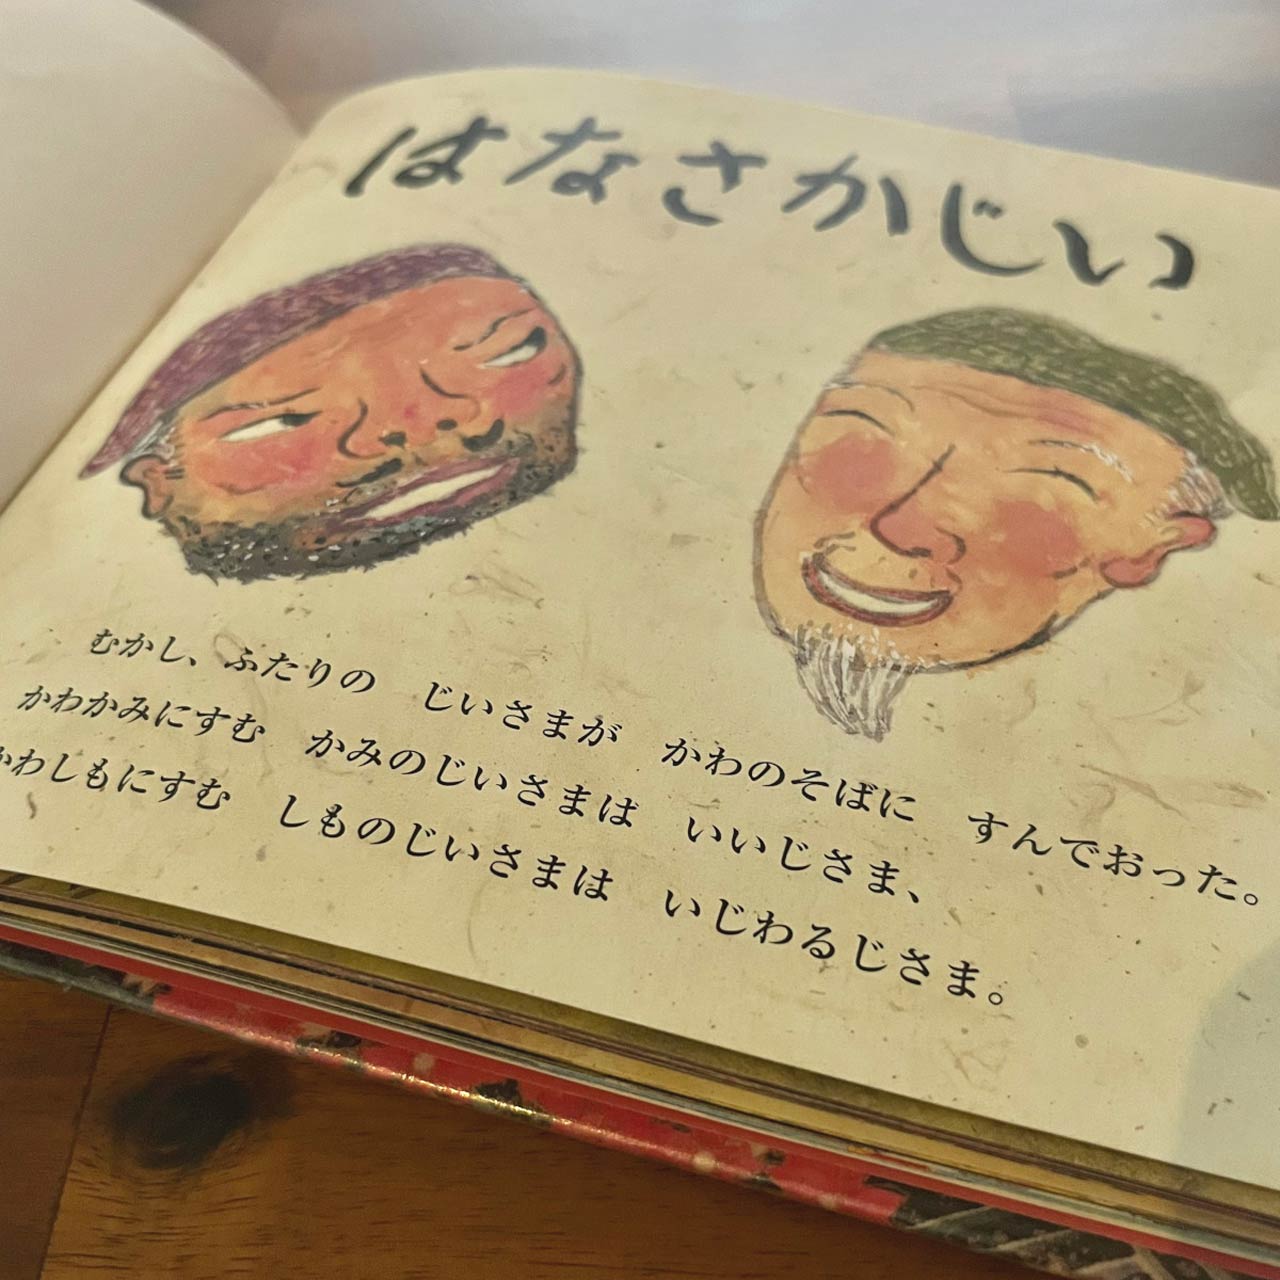 はなさかじい
むかし、ふたりの　じいさまが　かわのそばに　すんでおった。
かわかみにすむ　かみのじいさまは　いいじさま、
かわしもにすむ　しものじいさまは　いじわるじさま。